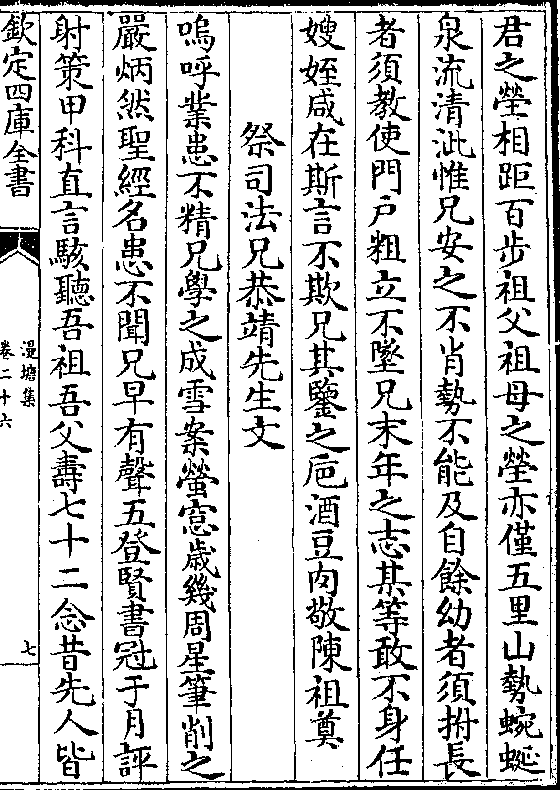 君之塋相距百步祖父祖母之塋亦僅五里山勢蜿蜒
泉流清泚惟兄安之不肖勢不能及自餘幼者須拊長
者須教使門户粗立不墜兄末年之志某等敢不身任
嫂姪咸在斯言不欺兄其鑒之巵酒豆肉敬陳祖奠
祭司法兄恭靖先生文
嗚呼業患不精兄學之成雪案螢窓歳幾周星筆削之
嚴炳然聖經名患不聞兄早有聲五登賢書冠于月評
射策甲科直言駭聽吾祖吾父壽七十二念昔先人皆
欽定四庫全書
漫塘集
卷二十六
七